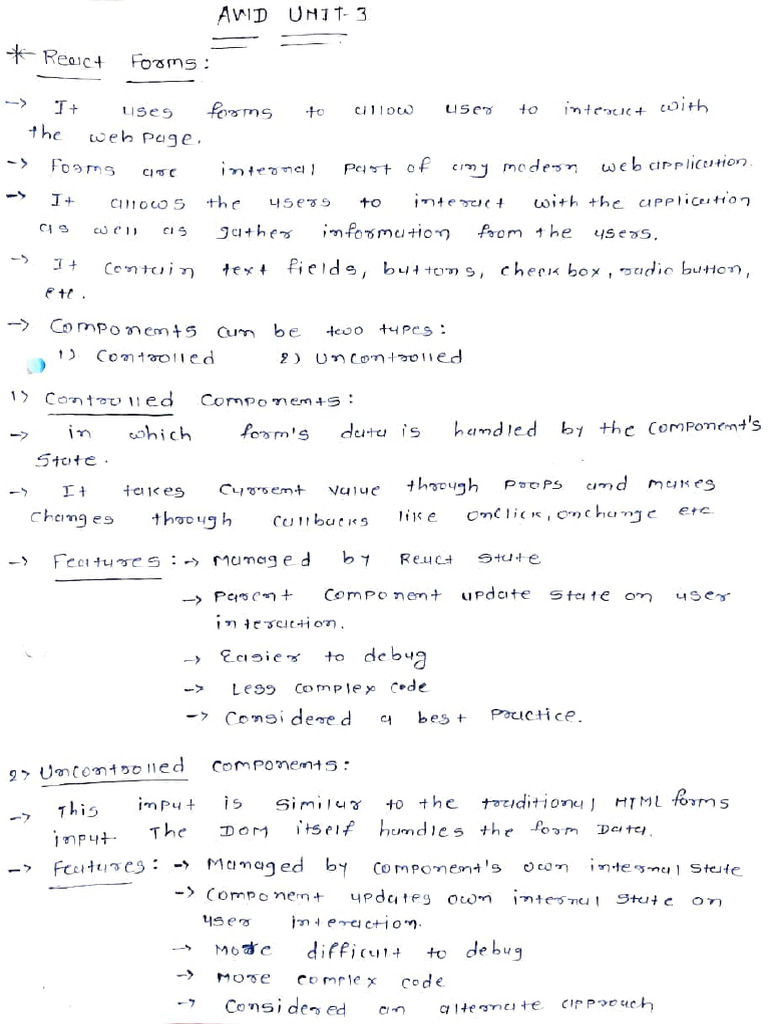 AWD UNIT-3
* React Forms:
-> It uses forms to allow user to interact with
the web page.
-> Forms are internal part of any modern web application.
-> It allows the users to interact with the application
as well as gather information from the users.
-> It contain text fields, buttons, checkbox, radio button,
etc.
-> Components can be two types:
1) Controlled 2) Uncontrolled
1) Controlled Components:
-> in which form's data is handled by the component's
state.
-> It takes current value through props and makes
changes through callbacks like onclick, onchange etc
-> Features: -> Managed by React state
-> Parent component update state on user
interaction.
-> Easier to debug
-> Less complex code
-> Considered a best practice.
2) Uncontrolled components:
-> This input is similar to the traditional HTML forms
input. The DOM itself handles the form Data.
-> Features: -> Managed by component's own internal state
-> Component updates own internal state on
user interaction.
-> More difficult to debug
-> More complex code
-> Considered an alternate approach